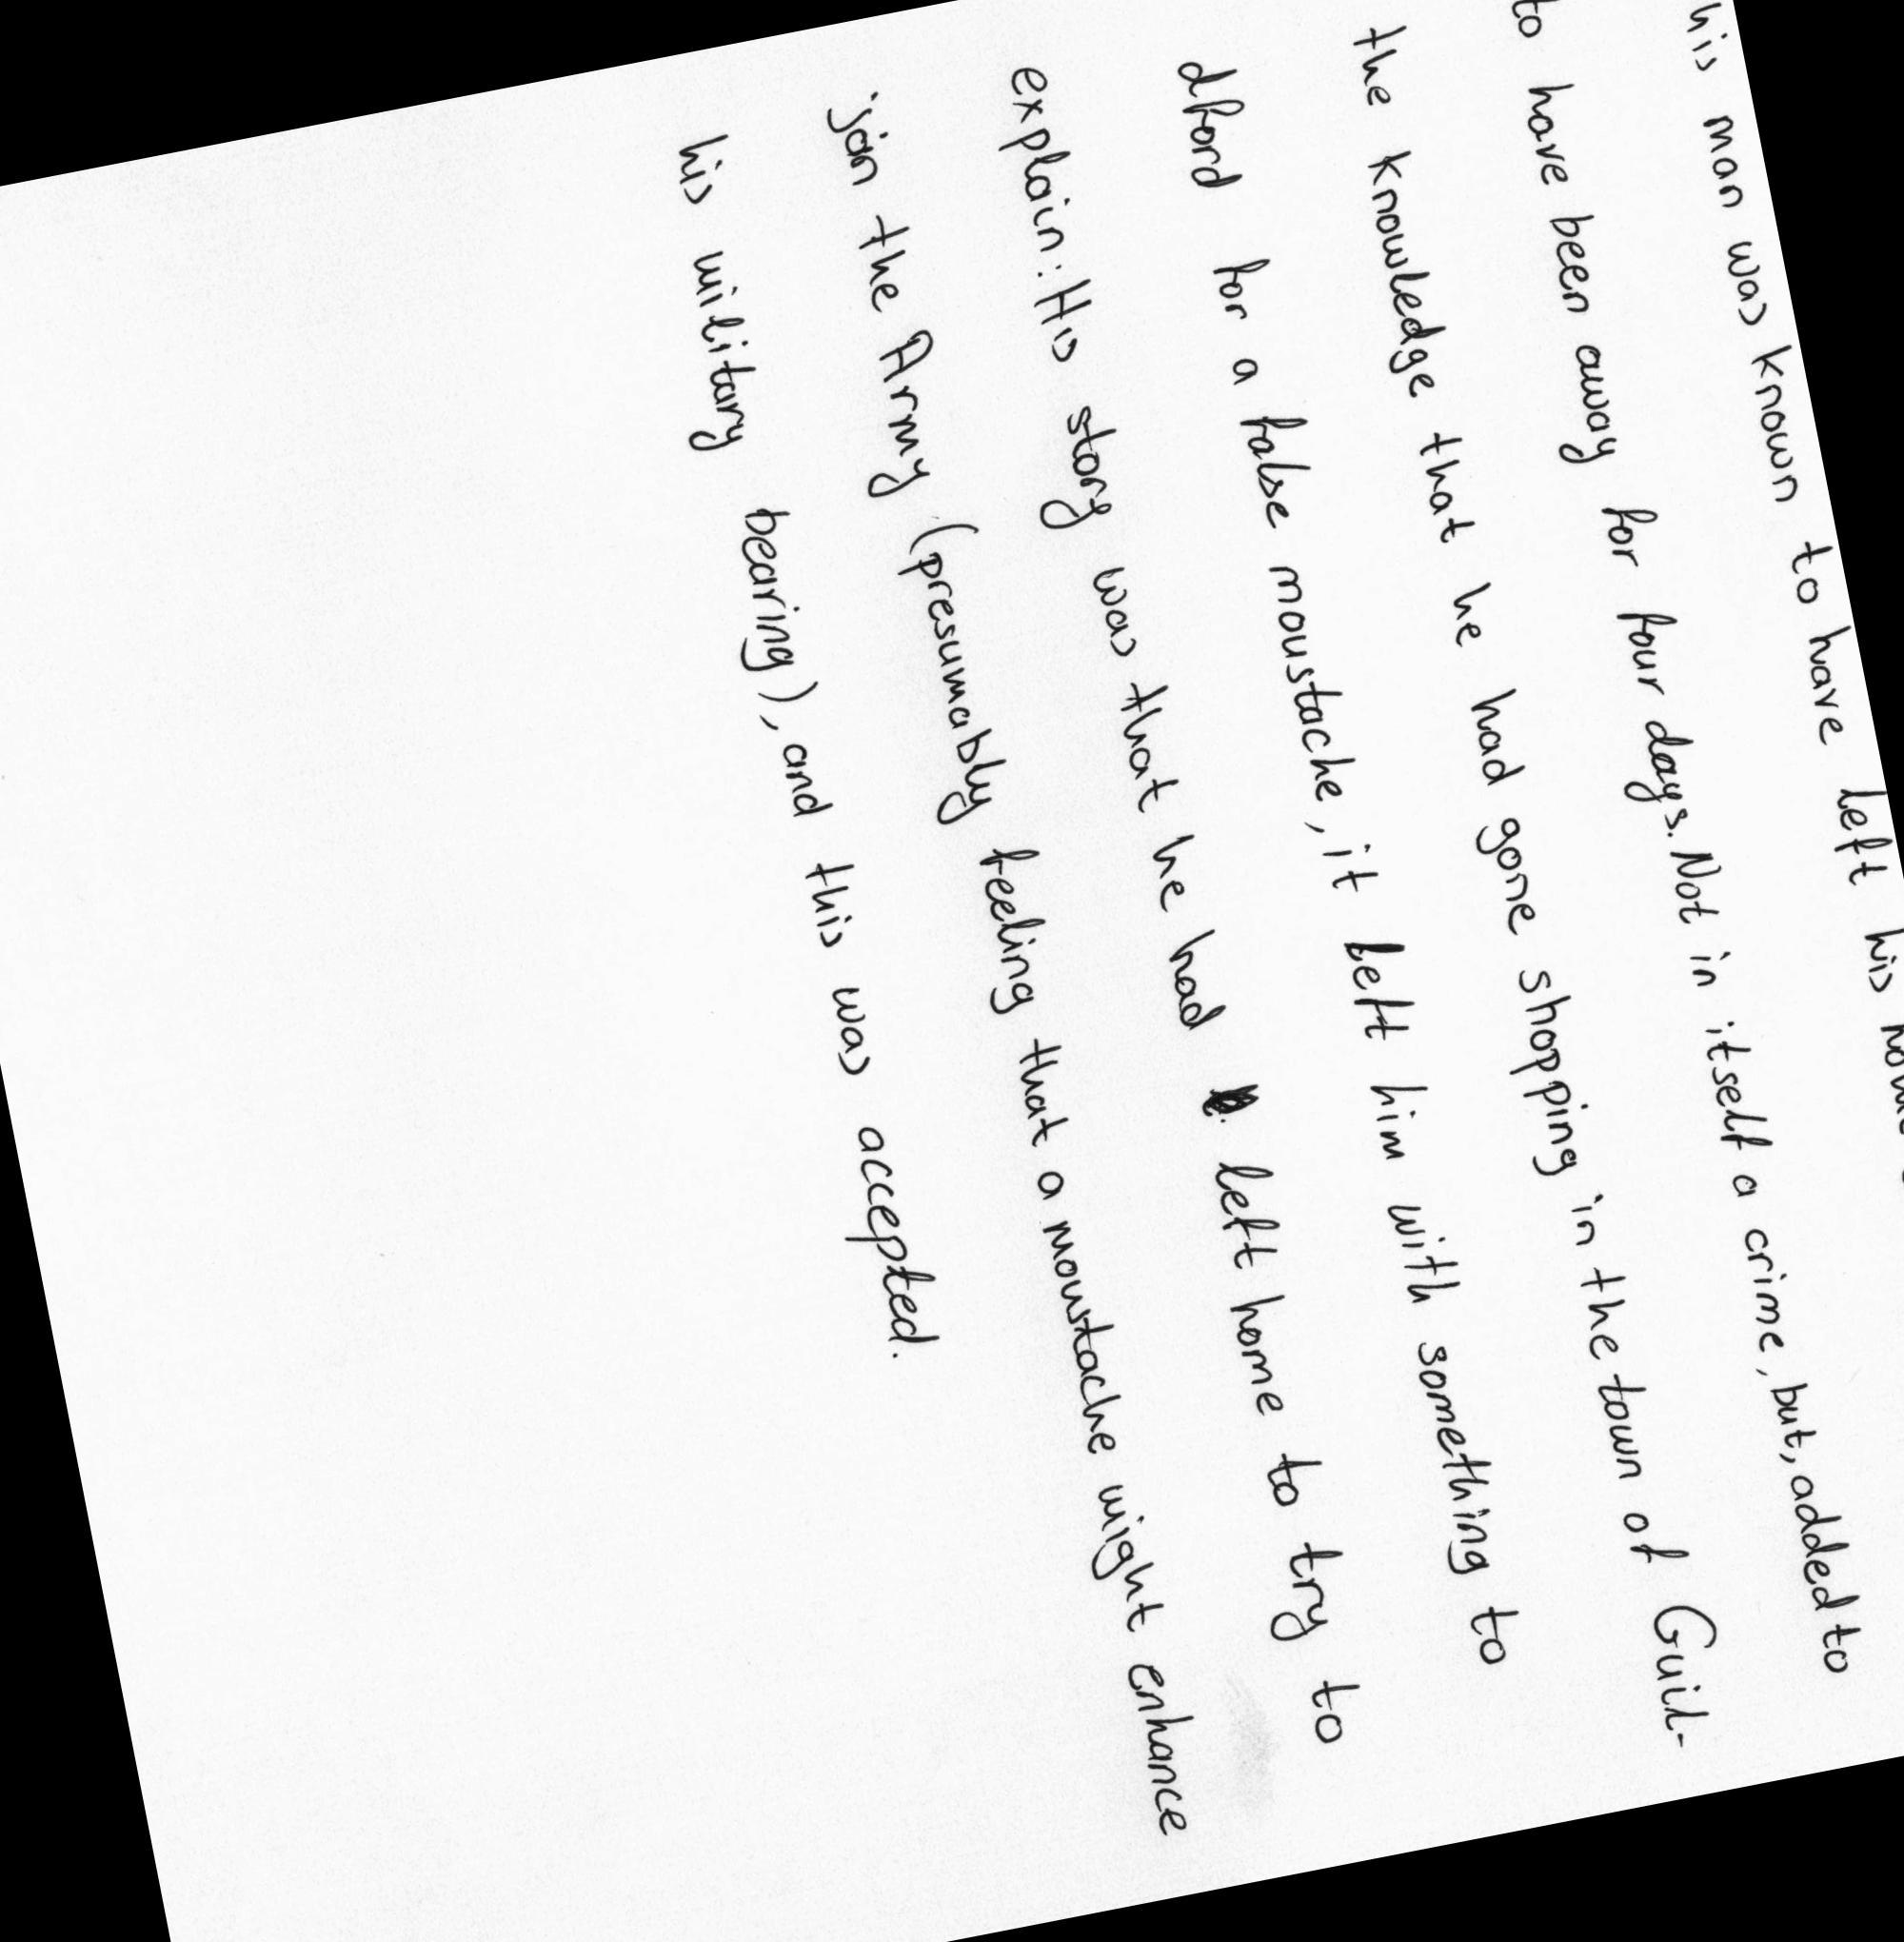 his man was known to have left his
to have been away for four days. Not in itself a crime, but, added to
the knowledge that he had gone shopping in the town of Guil-
dford for a false moustache, it left him with something to
explain: His story was that he had left home to try to
join the Army (presumably feeling that a moustache might enhance
his military bearing), and this was accepted.